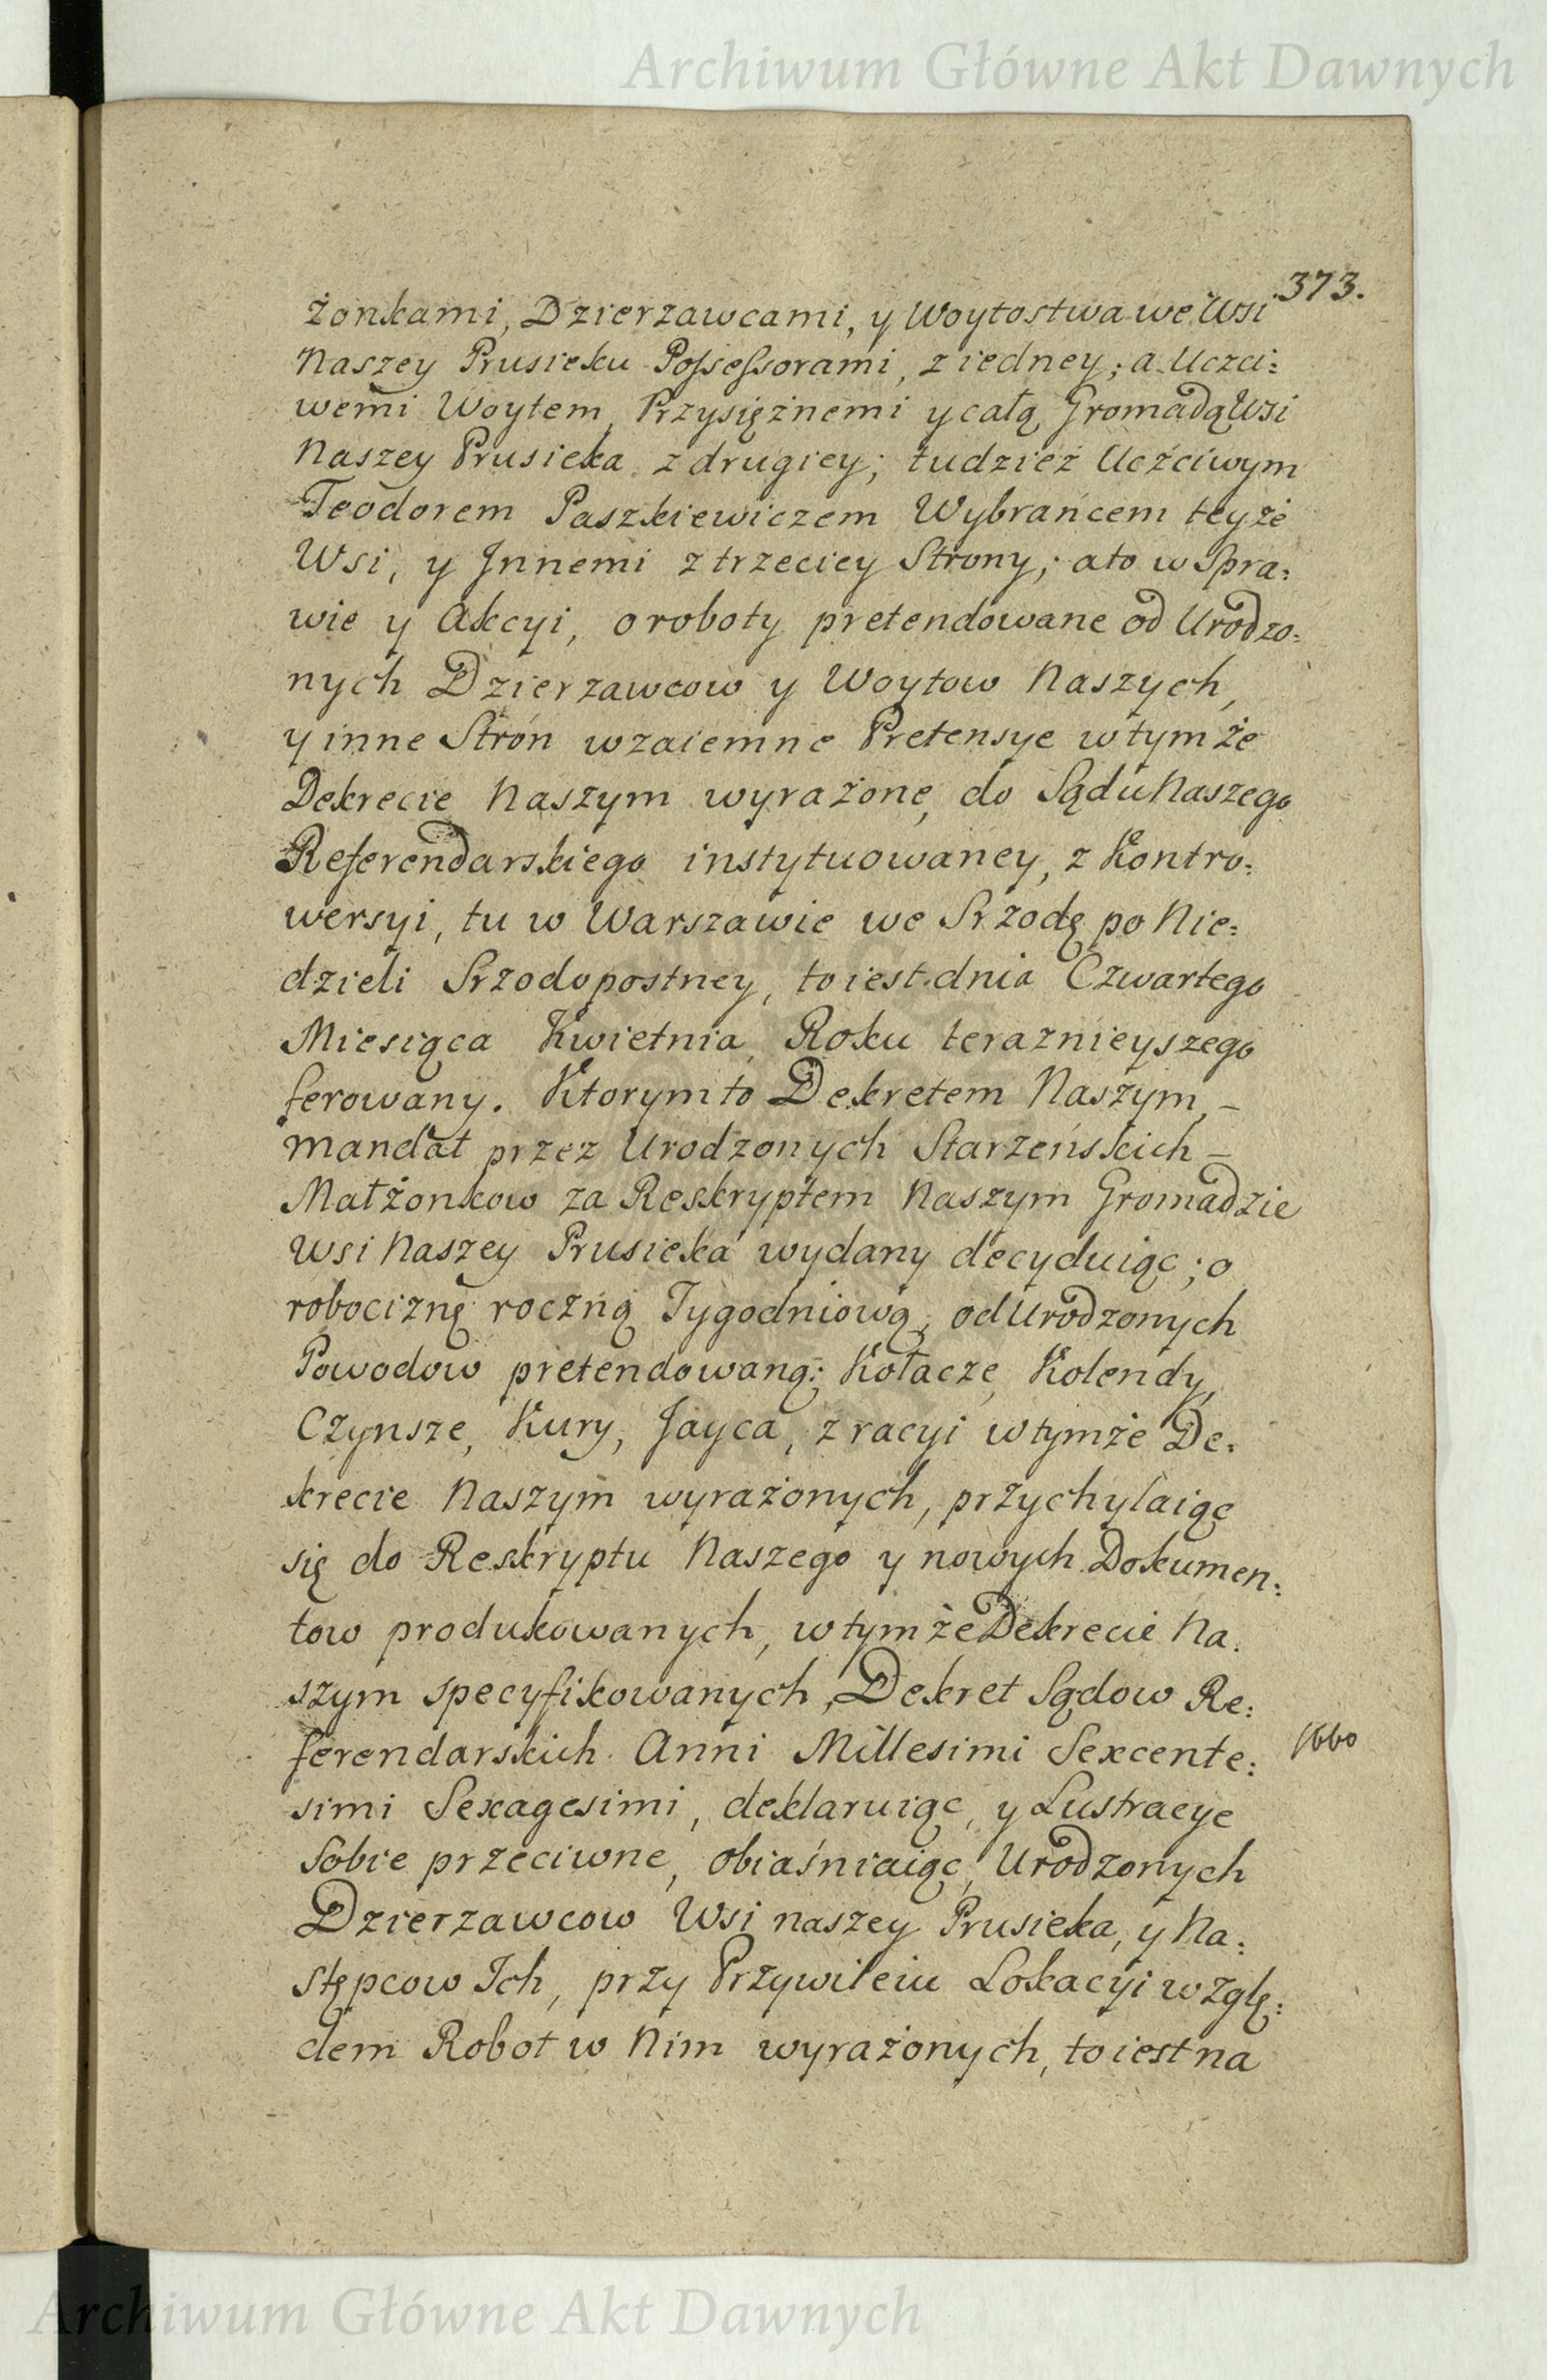 Archiwum Główne Akt Dawnych
373.
żonkami, Dzierzawcami, y Woytostwa we Wsi
Naszey Prusieku Possessorami, z iedney; a Uczci:
wemi Woytem, Przysiężnemi y całą Gromadą Wsi
Naszey Prusieka z drugiey; tudzież Uczciwym
Teodorem Paszkiewiczem Wybrańcem teyże
Wsi, y Innemi z trzeciey Strony; a to w Spra:
wie y Akcyi, o roboty pretendowane od Urodzo:
nych Dzierzawcow y Woytow Naszych,
y inne Strón wzaiemne Pretensye w tymże
Dekrecie Naszym wyrażone, do Sądu Naszego
Referendarskiego instytuowaney, z Kontro:
wersyi, tu w Warszawie we Srzodę po Nie:
dzieli Srzodopostney, to iest dnia Czwartego
Miesiąca Kwietnia Roku teraznieyszego
ferowany. Ktorym to Dekretem Naszym, –
mandat przez Urodzonych Starzeńskich –
Małżonkow za Reskryptem Naszym Gromadzie
Wsi Naszey Prusieka wydany decyduiąc; o
robociznę roczną Tygodniową, od Urodzonych
Powodow pretendowaną; Kołacze, Kolendy,
Czynsze, Kury, Jayca, z racyi w tymże De:
krecie Naszym wyrażonych, przychylaiąc
się do Reskryptu Naszego y nowych Dokumen:
tow produkowanych, w tymże Dekrecie Na:
szym specyfikowanych, Dekret Sądow Re:
ferendarskich Anni Millesimi Sexcente: 1660
simi Sexagesimi, deklaruiąc, y Lustracye
Sobie przeciwne, obiaśniaiąc, Urodzonych
Dzierzawcow Wsi naszey Prusieka, y Na:
stępcow Ich, przy Przywileiu Lokacyi wzglę:
dem Robot w Nim wyrażonych, to iest na
Archiwum Główne Akt Dawnych